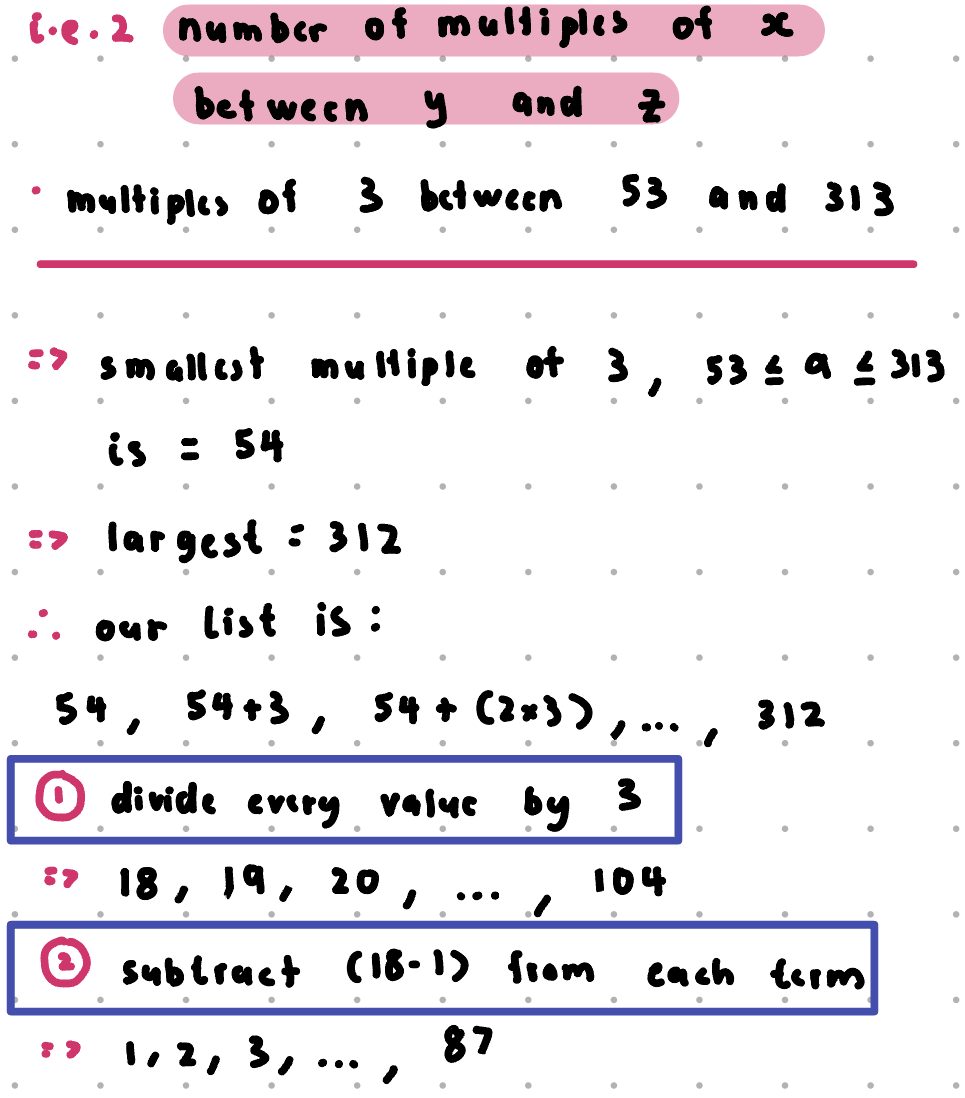 i.e. 2 number of multiples of x
between y and z
· multiples of 3 between 53 and 313
=> smallest multiple of 3, 53 ≤ a ≤ 313
is = 54
=> largest = 312
∴ our list is:
54, 54+3, 54 + (2×3), ..., 312
① divide every value by 3
=> 18, 19, 20, ..., 104
② subtract (18-1) from each term
=> 1, 2, 3, ..., 87